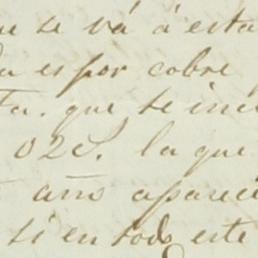 ue se vá á esta
a es por cobre
ta. que se inc
02S. la que
año apareci
si en todo este